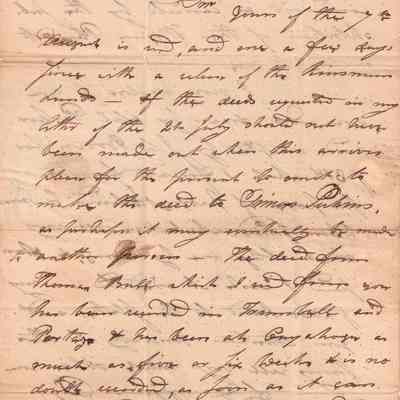 Sir
Yours of the 7th
August is recd, and one a few days
since with a return of the Kinsman
deeds — If the deeds requested in my
letter of the 26 July should not have
been made out when this arrives
please for the present to omit to
make the deed to Simon Perkins,
as perhaps it may eventually be made
to another person — The deed from
Thomas Bull which I recd from you
has been recorded in Trumbull and
Portage & has been at Cuyahoga as
much as five or six weeks & is no
doubt recorded, as soon as it comes